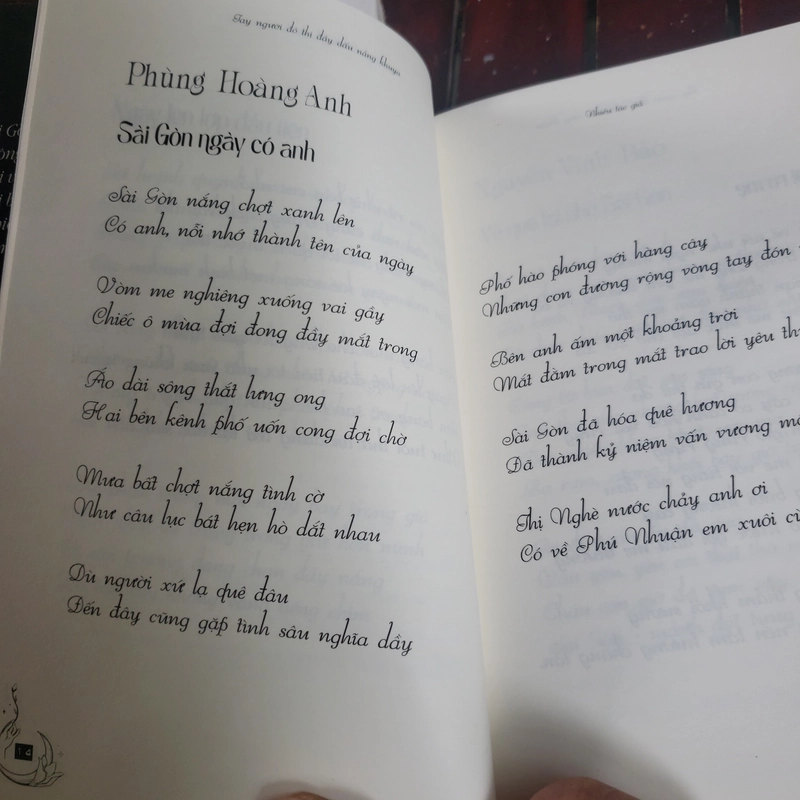 Tay người đô thị đầy dấu nắng khuya
Phùng Hoàng Anh
Sài Gòn ngày có anh
Sài Gòn nắng chợt xanh lên
Có anh, nỗi nhớ thành tên của ngày
Vòm me nghiêng xuống vai gầy
Chiếc ô mùa đợi đong đầy mắt trong
Áo dài sông thắt lưng ong
Hai bên kênh phố uốn cong đợi chờ
Mưa bất chợt nắng tình cờ
Như câu lục bát hẹn hò dắt nhau
Dù người xứ lạ quê đâu
Đến đây cũng gặp tình sâu nghĩa dầy
14
Nhiều tác giả
Phố hào phóng với hàng cây
Những con đường rộng vòng tay đón
Bên anh ấm một khoảng trời
Mắt đằm trong mắt trao lời yêu
Sài Gòn đã hóa quê hương
Đã thành kỷ niệm vấn vương
Thị Nghè nước chảy anh ơi
Có về Phú Nhuận em xuôi